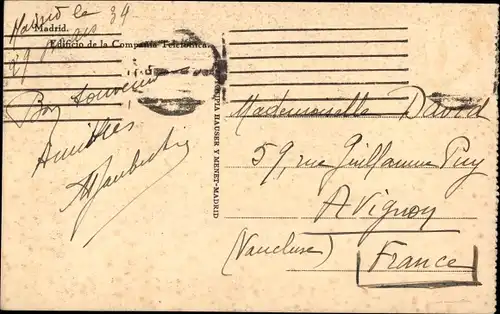 Madrid le
29 Mars 34
Madrid.
Edificio de la Compañía Telefónica.
Bon souvenir
Amitiés
HAUSER Y MENET-MADRID
Mademoiselle David
59, rue Guillaume Puy
Avignon
(Vaucluse)
France